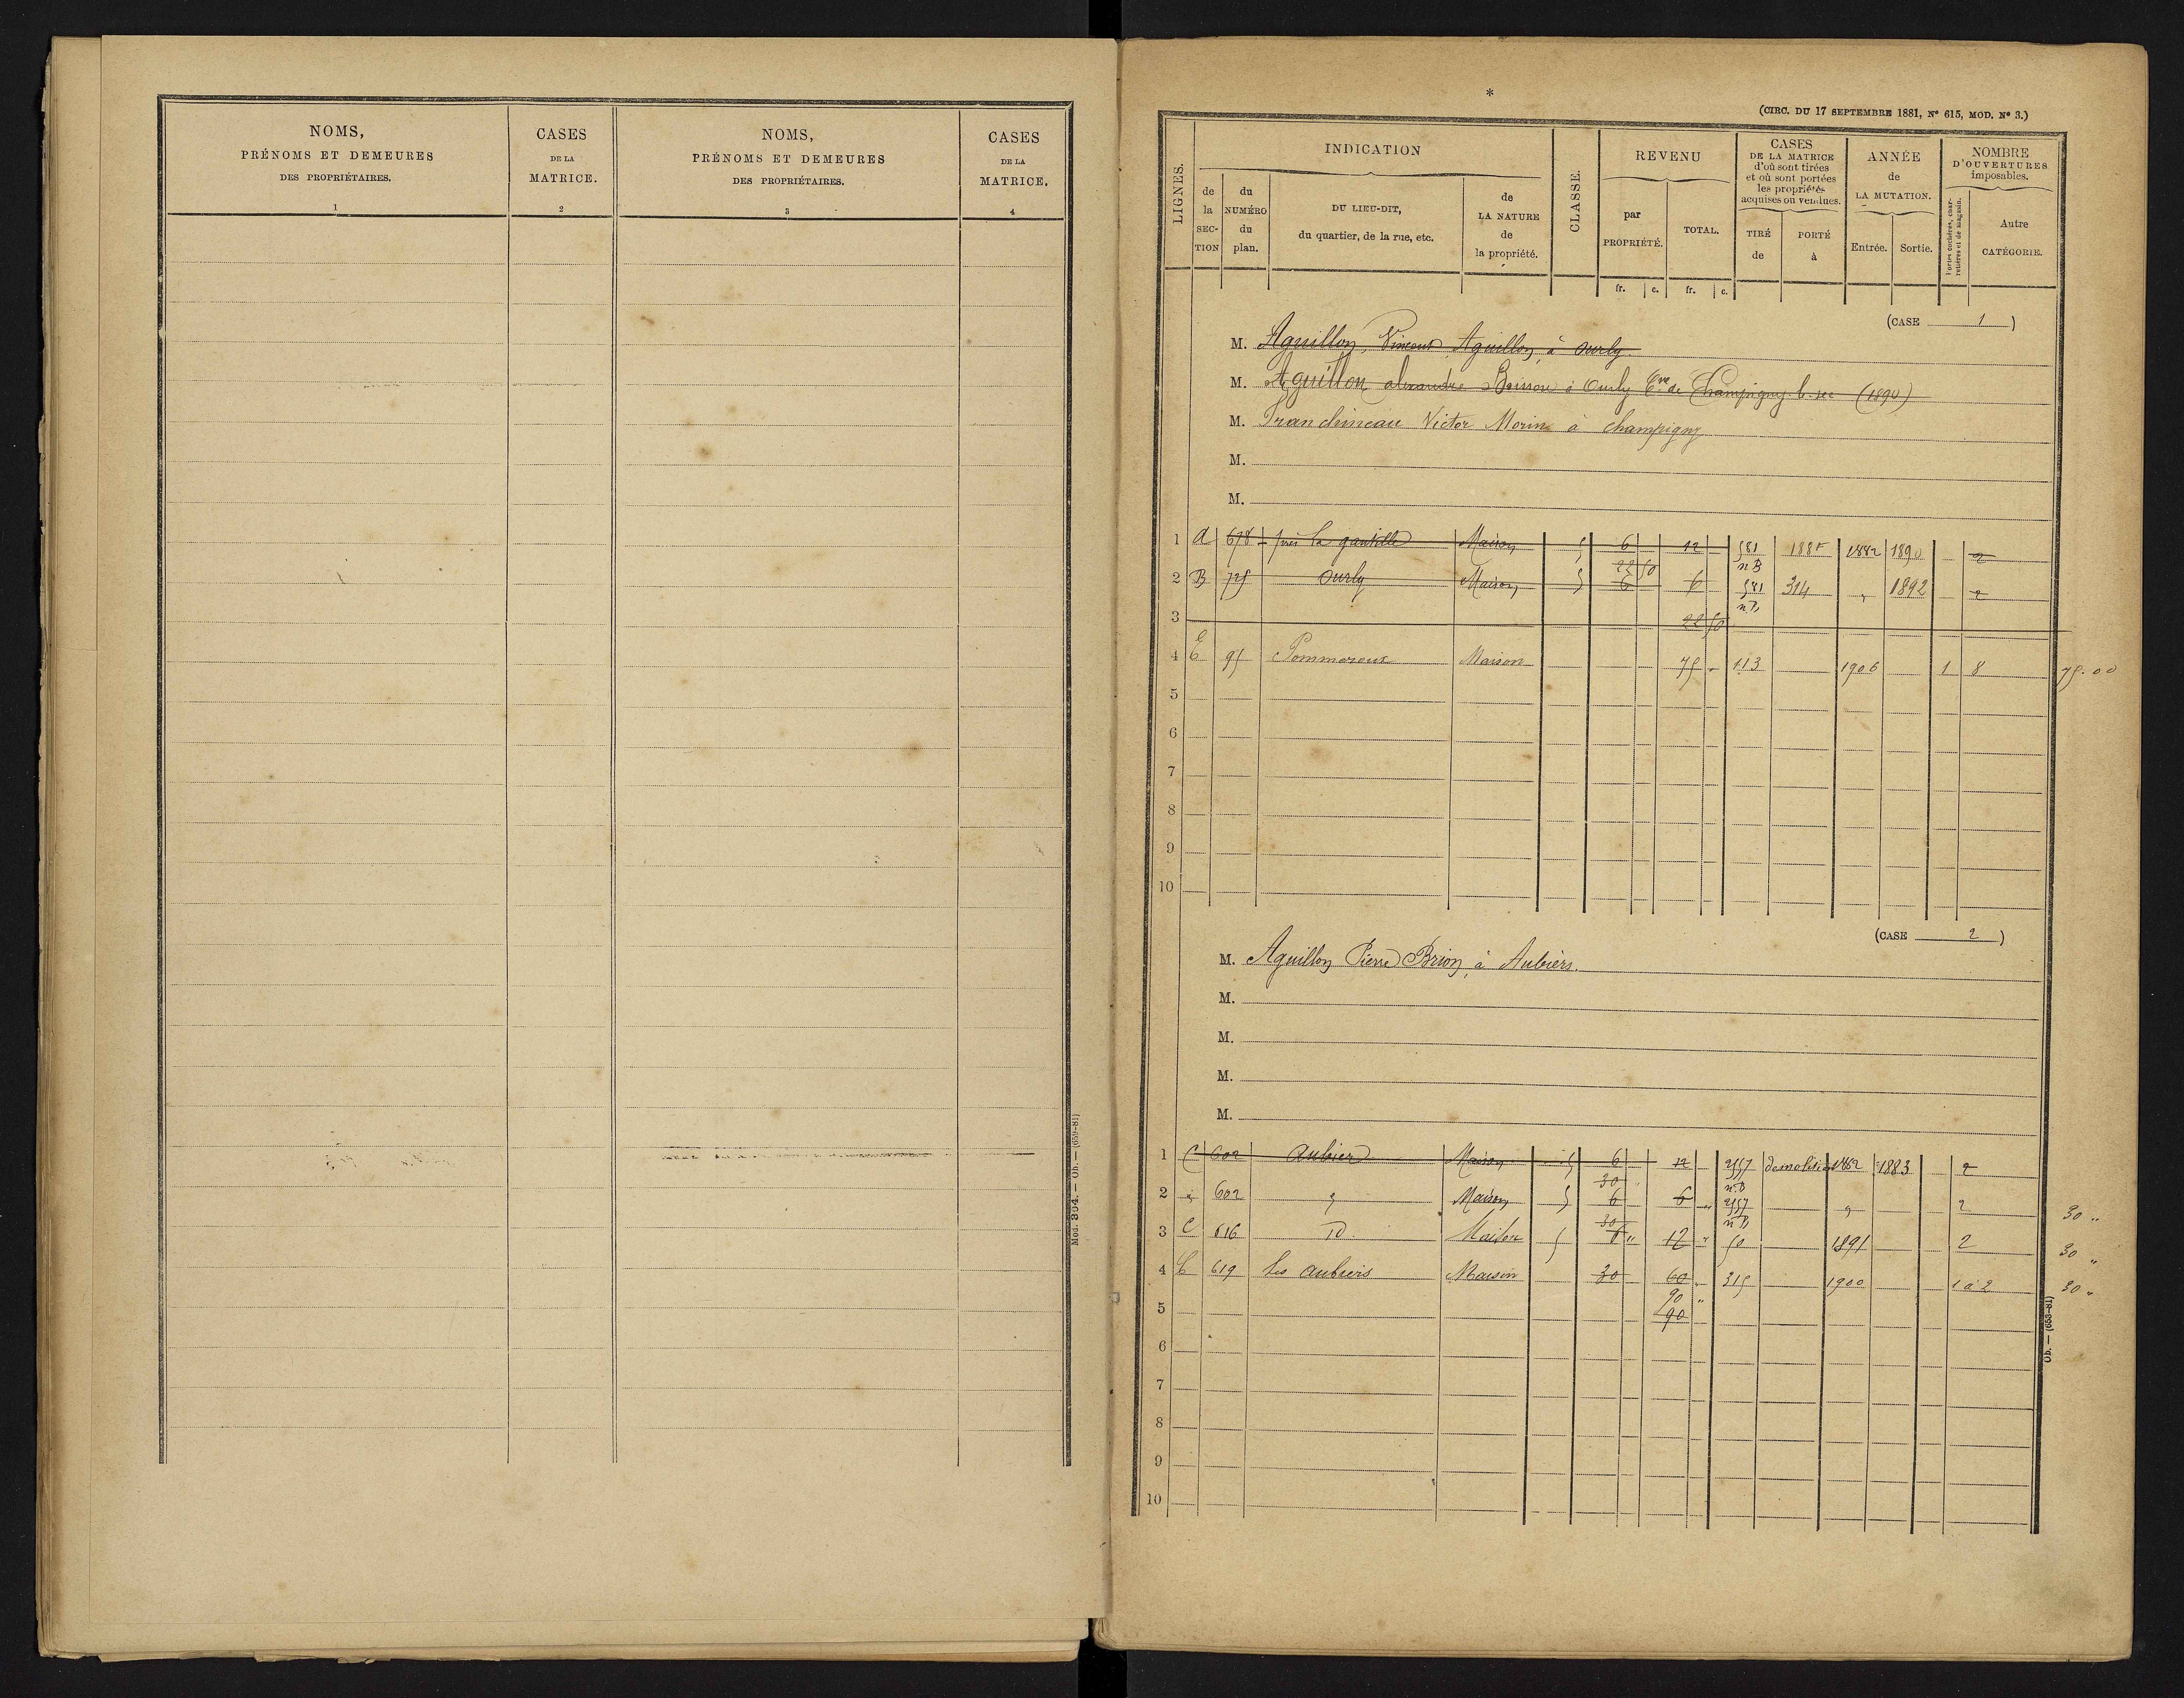 NOMS,
PRÉNOMS ET DEMEURES
DES PROPRIÉTAIRES.
1
CASES
DE LA
MATRICE.
2
NOMS,
PRÉNOMS ET DEMEURES
DES PROPRIÉTAIRES.
3
CASES
DE LA
MATRICE.
4
Mod. 304. — Ob. — (659-81)
*
(CIRC. DU 17 SEPTEMBRE 1881, N° 615, MOD. N° 3.)
LIGNES.
INDICATION
de la SECTION
du NUMÉRO du plan.
DU LIEU-DIT,
du quartier, de la rue, etc.
de LA NATURE de la propriété.
CLASSE.
REVENU
par PROPRIÉTÉ.
TOTAL.
fr. c. fr. c.
CASES
DE LA MATRICE
d'où sont tirées
et où sont portées
les propriétés
acquises ou vendues.
TIRÉ de
PORTÉ à
ANNÉE
de
LA MUTATION.
Entrée. Sortie.
NOMBRE
D'OUVERTURES
imposables.
Portes cochères, charretières et de magasin.
Autre CATÉGORIE.
(CASE 1)
M. Aguillon, Vincent Aguillon, à Ourly.
M. Aguillon alexandre Boisson à Ourly Cne de Champigny-l.-sec (1890)
M. Franchineau Victor Morin à champigny
M.
M.
1 A 678 près la Maison 5 6 12 581 nB 1882 1890 2
2 B 725 Ourly Maison 5 22 50 6 6 581 nB 314 " 1892 2
3 22 50
4 E 95 Pommeroux Maison 75 113 1906 1 8 75.00
5
6
7
8
9
10
(CASE 2)
M. Aguillon Pierre Brion, à Aubiers.
M.
M.
M.
M.
1 C 602 Aubier Maison 5 6 12 2557 nB demolition 1882 1883 2
2 " 602 " Maison 5 30 6 6 " 2557 nB " 2 30 "
3 C 616 D. Maison 5 30 6 " 12 " 50 1891 2 30 "
4 C 619 les aubiers Maison 30 60 " 315 1900 1 à 2 30 "
90 "
5 90
6
7
8
9
10
Ob. — (653-81)